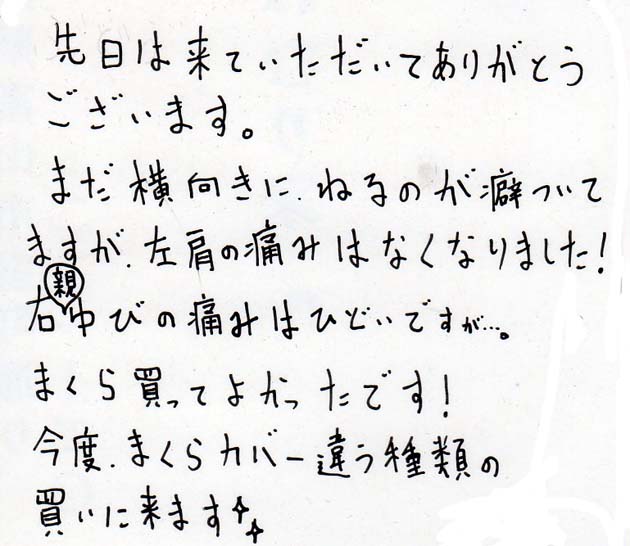 先日は来ていただいてありがとう
ございます。
まだ横向きに、ねるのが癖ついて
ますが、左肩の痛みはなくなりました!
右親ゆびの痛みはひどいですが…。
まくら買ってよかったです!
今度、まくらカバー違う種類の
買いに来ます